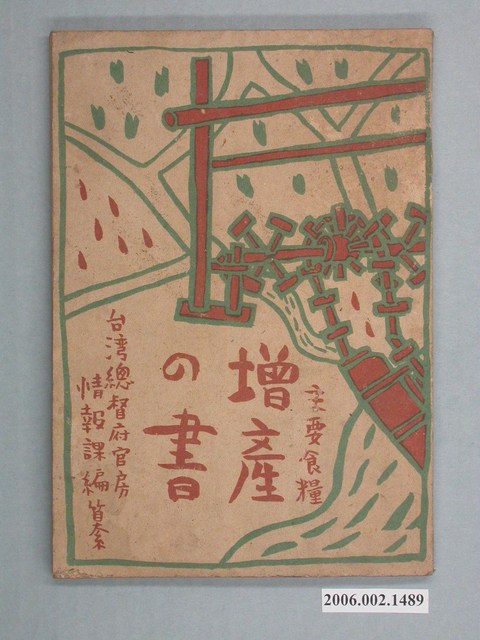 主要食糧
增產
の書
台湾總督府官房
情報課編纂
2006.002.1489